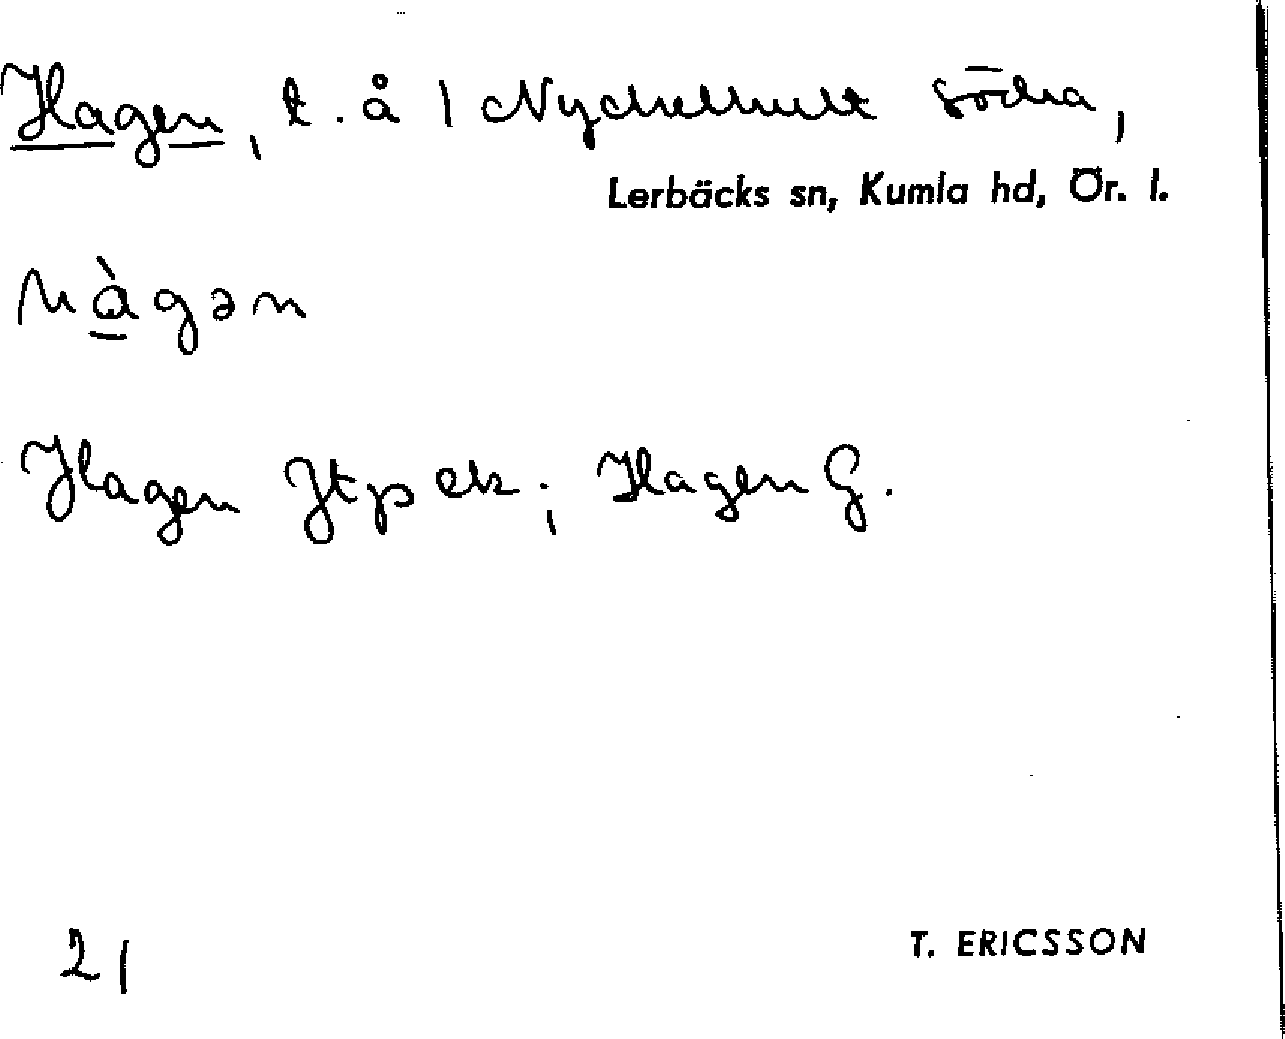 Hagen, t. å 1 Nyckelhult södra,
Lerbäcks sn, Kumla hd, Ör. l.
hàgən
Hagen Jtp ek; Hagen G.
21
T. ERICSSON